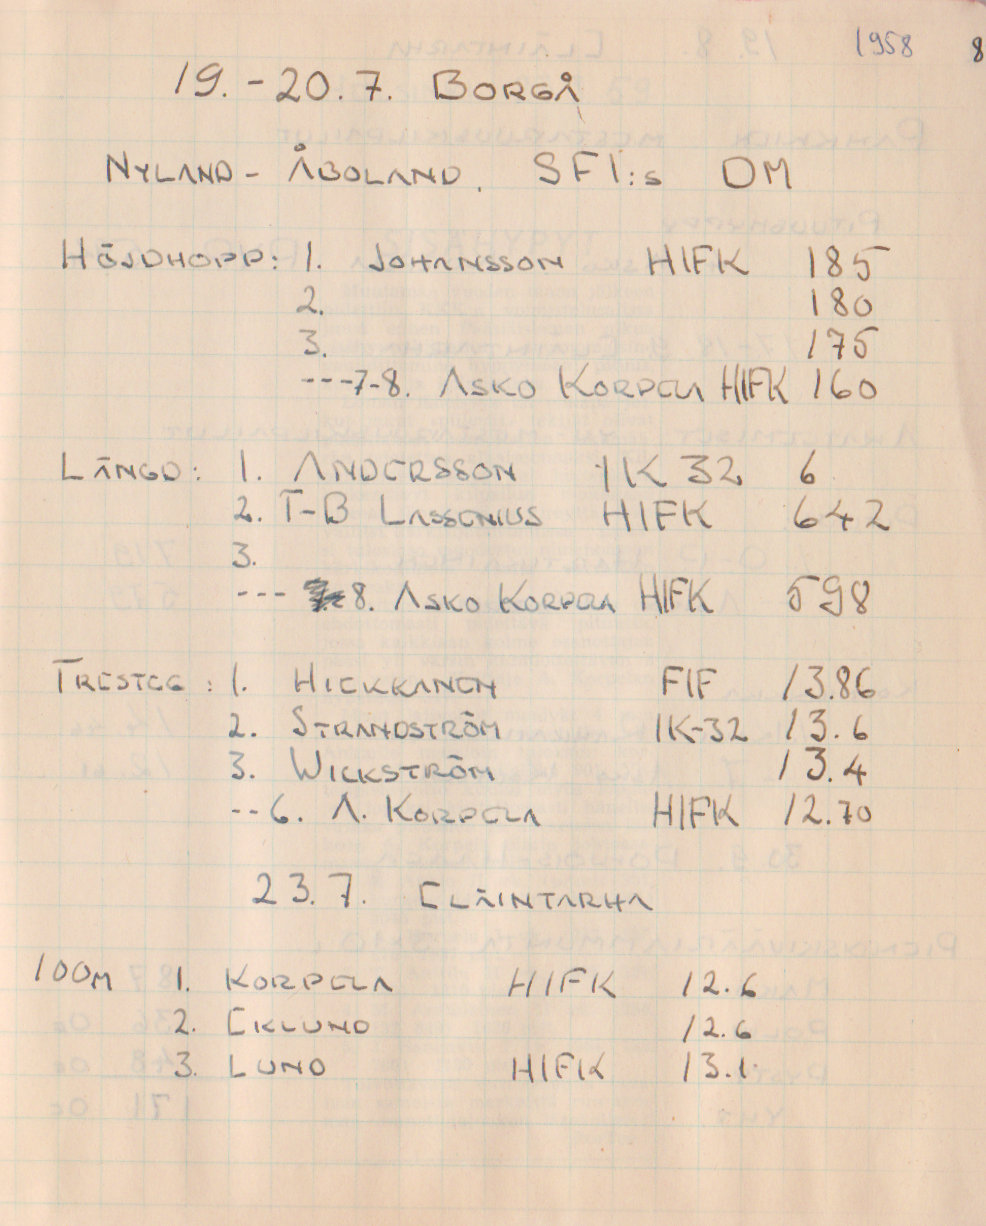 1958 8
19.-20.7. BORGÅ
NYLAND - ÅBOLAND. SFI:s DM
HÖJDHOPP: 1. JOHANSSON HIFK 185
2. 180
3. 175
---7-8. ASKO KORPELA HIFK 160
LÄNGD: 1. ANDERSSON IK 32 6
2. T-B LASSENIUS HIFK 642
3.
--- 8. ASKO KORPELA HIFK 598
TRESTEG: 1. HIEKKANEN FIF 13.86
2. STRANDSTRÖM IK-32 13.6
3. WICKSTRÖM 13.4
--6. A. KORPELA HIFK 12.70
23.7. ELÄINTARHA
100M 1. KORPELA HIFK 12.6
2. EKLUND 12.6
3. LUND HIFK 13.1